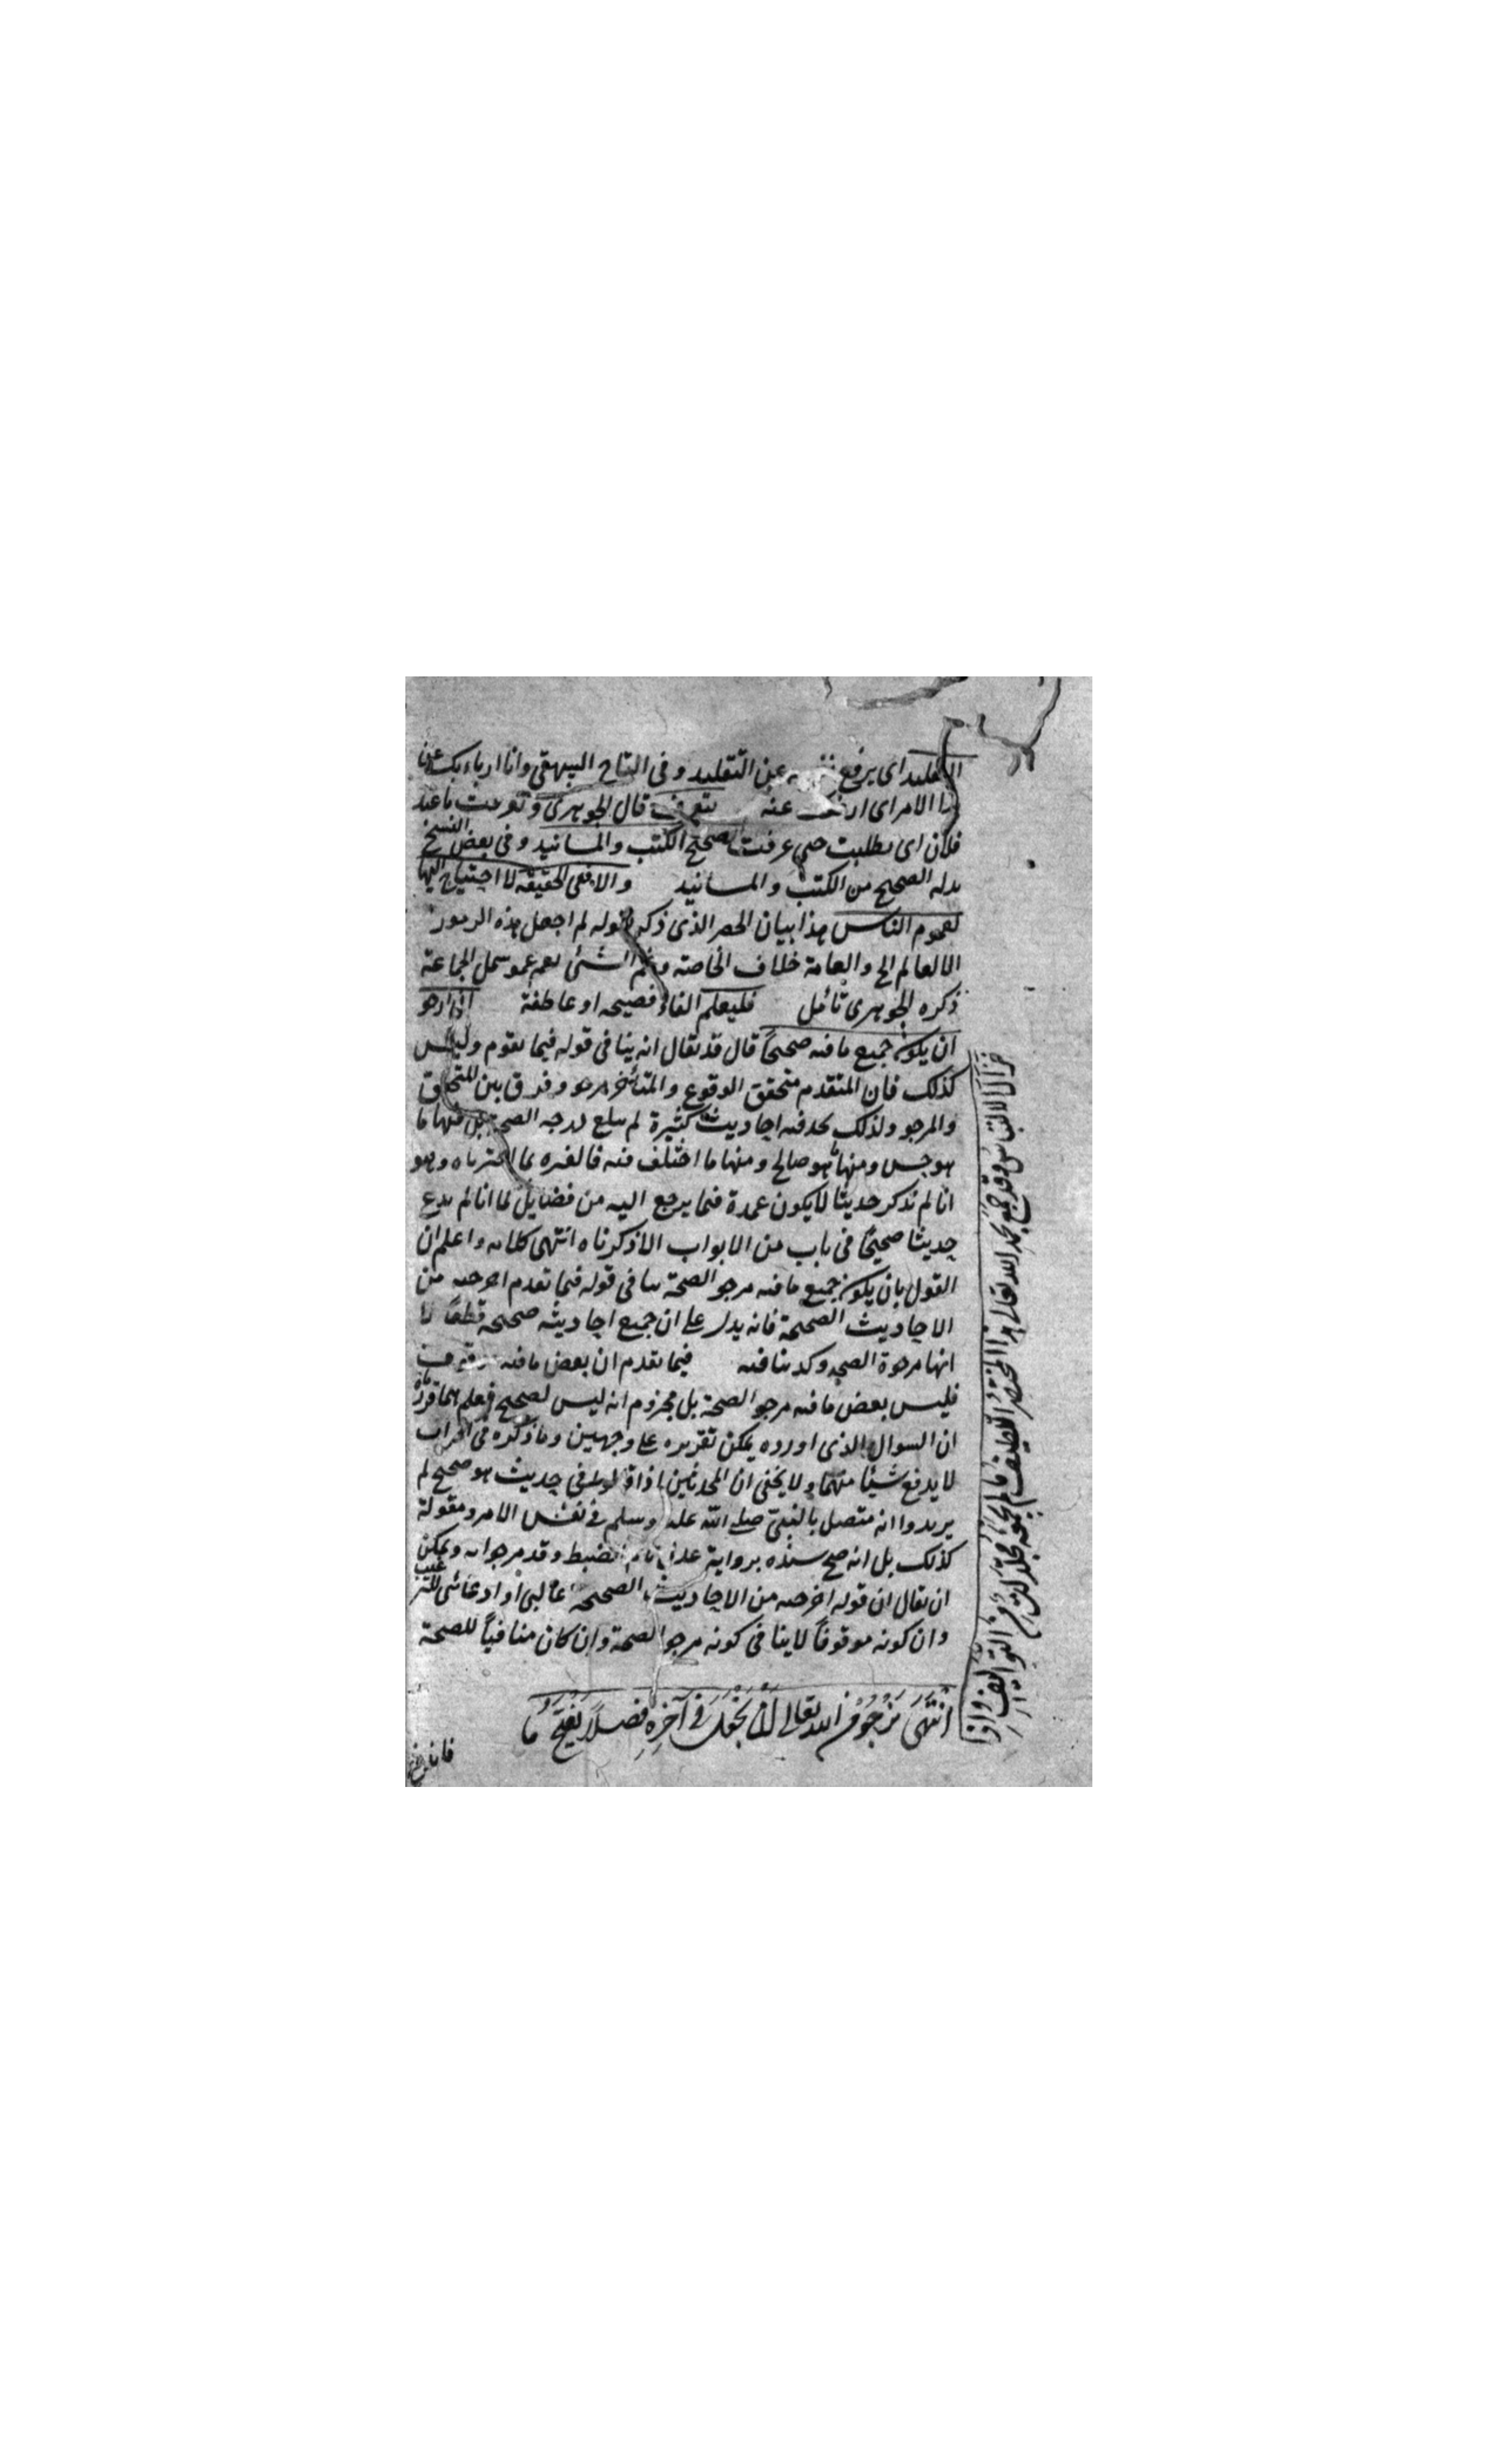 التقليد اى يرفع نفسه عن التقليد وفى التاج البيهقى وانا اربأ بك عن
هذا الامر اى ارفعك عنه يتعرف قال الجوهرى وتعرفت ما عند
فلان اى تطلبت حتى عرفت الصحيح الكتب والمسانيد وفى بعض النسخ
بدله الصحيح من الكتب والمسانيد والا ففى الحقيقة لا احتياج اليها
لعموم الناس هذا بيان الحصر الذى ذكر بقوله لم اجعل هذه الرموز
الا لعالم الخ والعامة خلاف الخاصة وعم الشئ يعم عموما شمل الجماعة
ذكره الجوهرى تأمل فليعلم الفاء فصيحة او عاطفة انى ارجو
ان يكون جميع ما فيه صحيحًا قال قد يقال انه ينافى قوله فيما تقدم وليس
كذلك فان المتقدم متحقق الوقوع والمتأخر مرجو وفرق بين المتحقق
والمرجو ولذلك تجد فيه احاديث كثيرة لم تبلغ درجة الصحة بل منها ما
هو حسن ومنها ما هو صالح ومنها ما اختلف فيه فالغيره لما اخترناه وهو
انا لم نذكر حديثا لا يكون عمدة فيما يرجع اليه من فضايل كما انا لم ندع
حديثا صحيحًا فى باب من الابواب الا ذكرناه انتهى كلامه واعلم ان
القول بان يكون جميع ما فيه مرجو الصحة ينافى قوله فيما تقدم اخرجته من
الاحاديث الصحيحة فانه يدل على ان جميع احاديثه صحيحة قطعًا لا
انها مرجوة الصحة وكذا ينافيه فيما تقدم ان بعض ما فيه موقوف
فليس بعض ما فيه مرجو الصحة بل مجزوم انه ليس بصحيح فعلم بما قررناه
ان السوال الذى اورده يمكن تقريره على وجهين وما ذكره فى الجواب
لا يدفع شيئا منهما ولا يخفى ان المحدثين اذا قالوا فى حديث هو صحيح لم
يريدوا انه متصل بالنبى صلى الله عليه وسلم فى نفس الامر ومقولة
كذلك بل انه صح سنده برواية عدل تام الضبط وقد مرجوابه ويمكن
ان يقال ان قوله اخرجته من الاحاديث الصحيحة غالبى او ادعائى للترغيب
وان كونه موقوفًا لا ينافى كونه مرجو الصحة وان كان منافيًا للصحة
انتهى نرجو من الله تعالى ان نجعل فى آخره فصلا يفتح ما
فى الالتباس وقد جمع بحمد الله تعالى هذا المختصر اللطيف ما لم تجمعه مجلدات من التواليف واذا